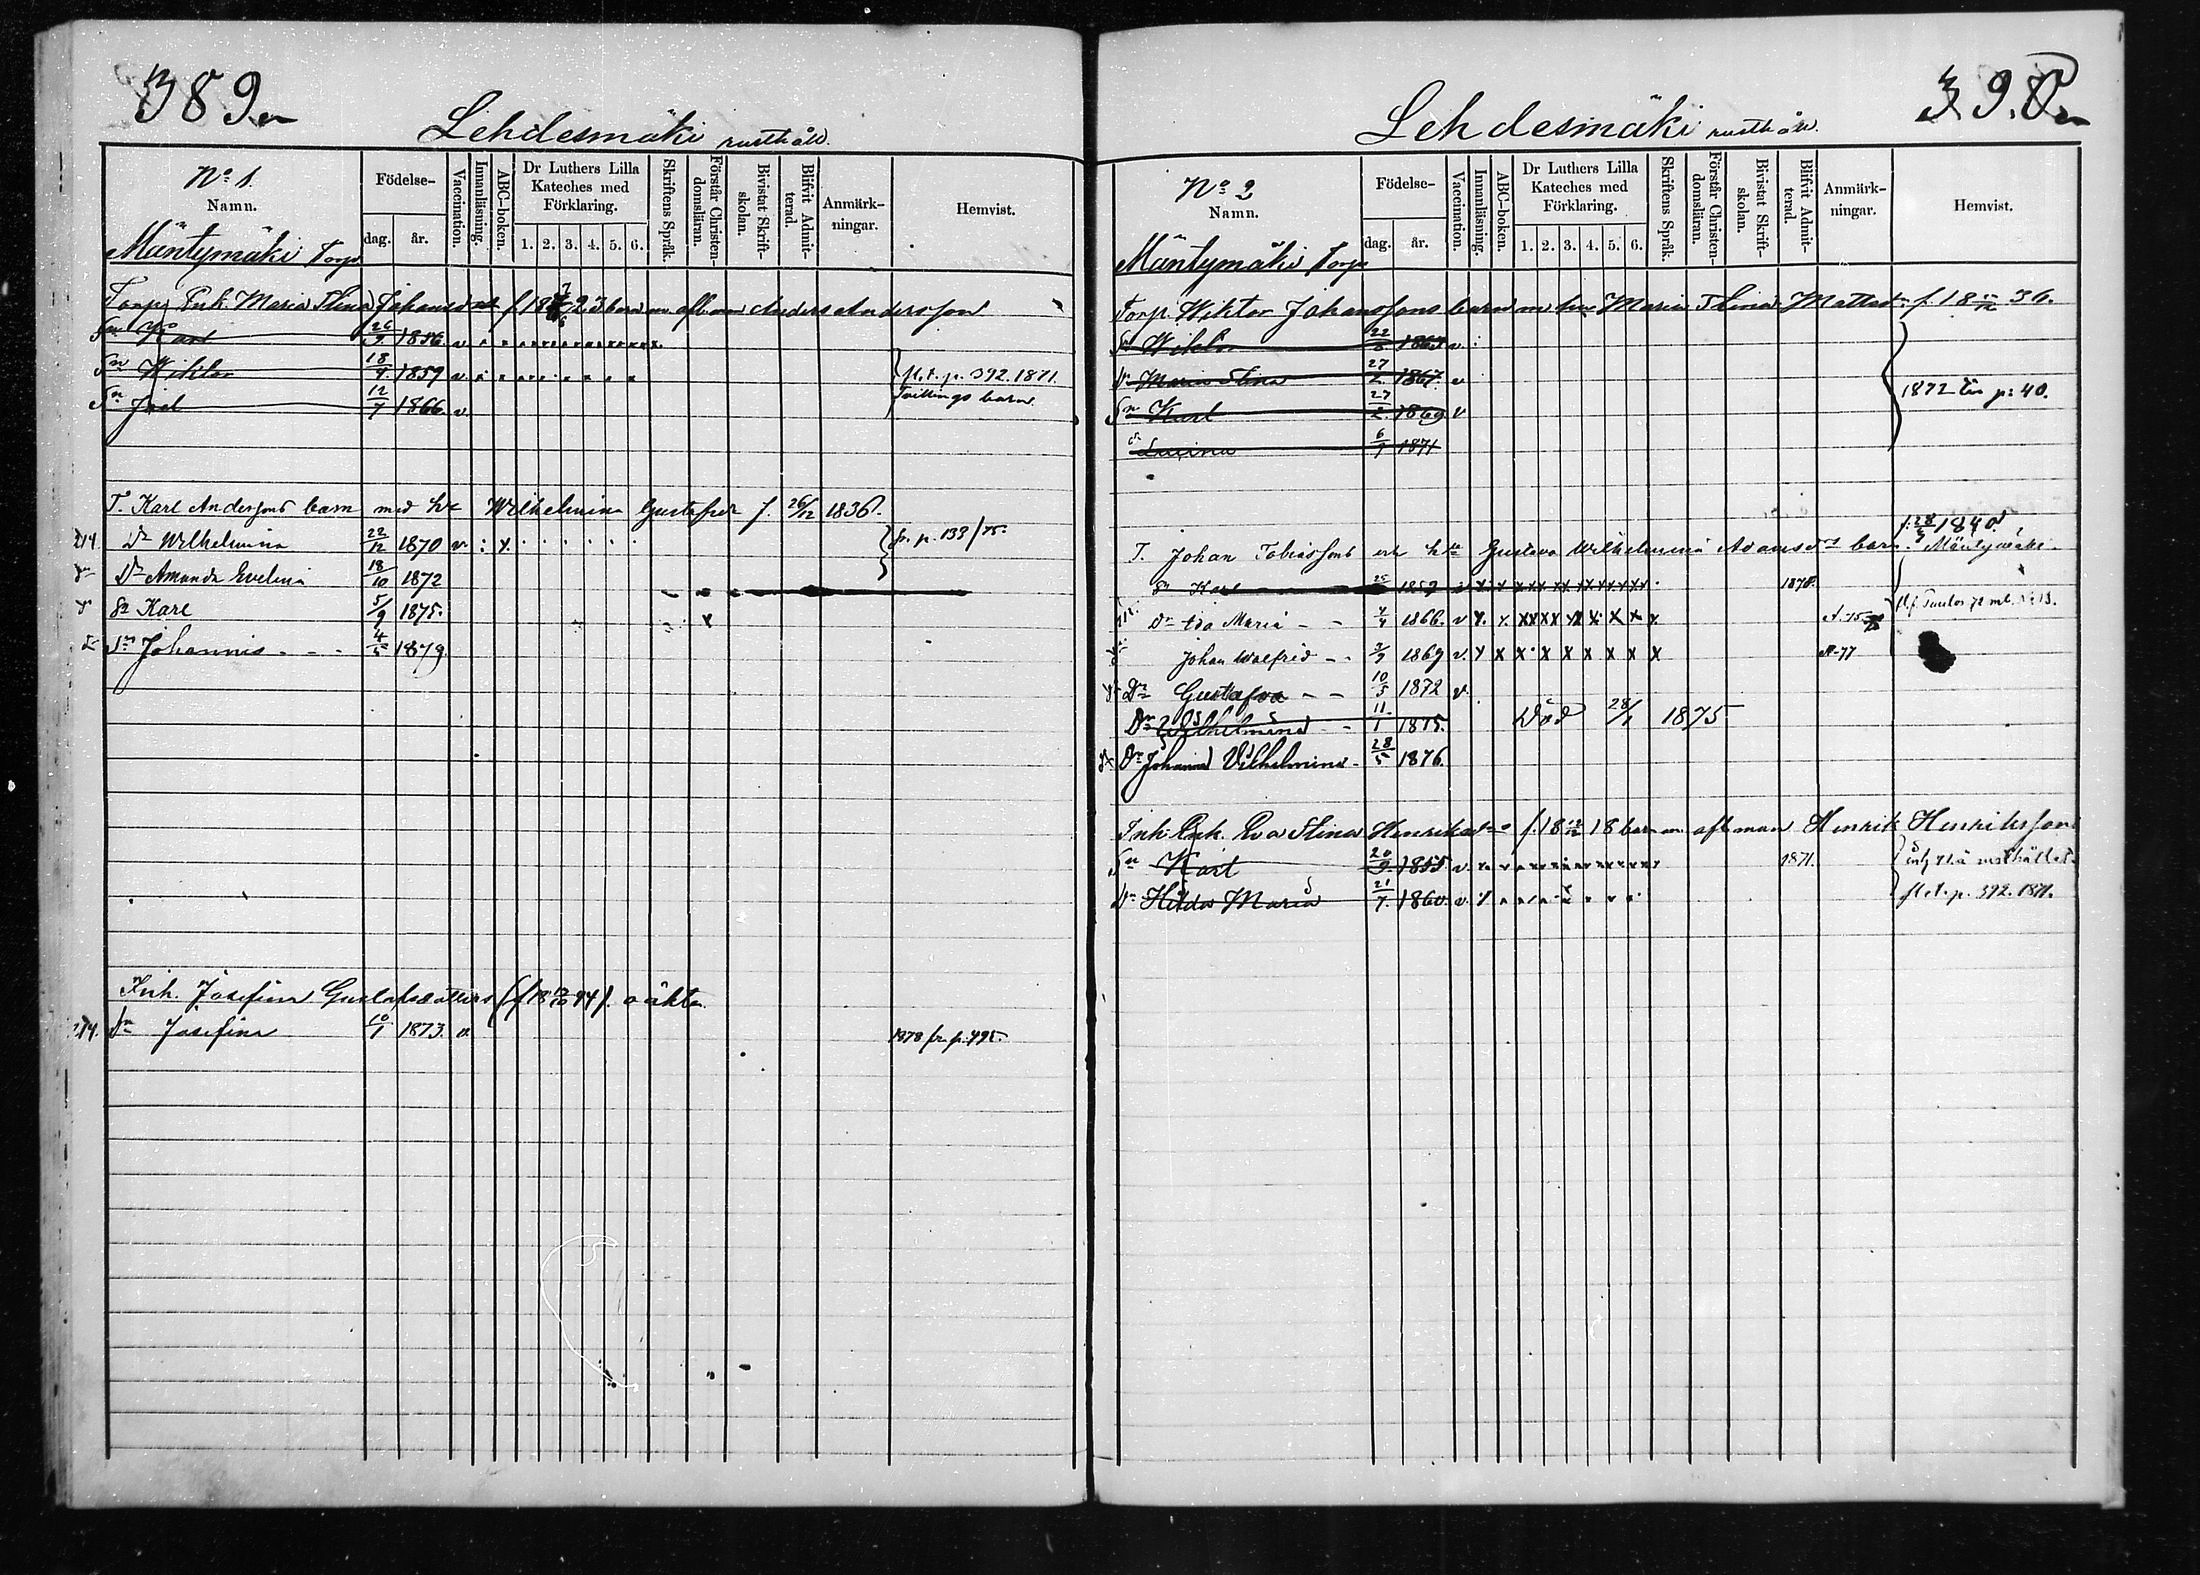 389
Lehdesmäki rusthåll.
No 1.
Namn.
Födelse-
dag.
år.
Vaccination.
Innanläsning.
ABC-boken.
Dr Luthers Lilla
Kateches med
Förklaring.
1. 2. 3. 4. 5. 6.
Skriftens Språk.
Förstår Christen-
domsläran.
Bivistat Skrift-
skolan.
Blifvit Admit-
terad.
Anmärk-
ningar.
Hemvist.
Mäntymäki Torp
Torp. Enk. Maria Stina Johansdr f. 18 23 barn m. afl. man Anders Andersson
Sn Karl 26/9 1856 v
Sn Wiktor 18/9 1859 v fl. t. p. 392. 1871.
Sn Joel 12/7 1866 v Tvillings barn.
T. Karl Anderssons barn med h. Wilhelmina Gustafsdr f. 26/12 1836.
214. Dr Wilhelmina 22/12 1870 v fr. p. 133/75.
Dr Amanda Evelina 18/10 1872
Sn Karl 5/9 1875.
Sn Johannis 4/5 1879.
Inh. Josefina Gustafsdotters (f. 18 44). oäkta
214. Dr Josefina 10/1 1873. v. 1878 fr. p. 495.
390
Lehdesmäki rusthåll.
No 2
Namn.
Födelse-
dag.
år.
Vaccination.
Innanläsning.
ABC-boken.
Dr Luthers Lilla
Kateches med
Förklaring.
1. 2. 3. 4. 5. 6.
Skriftens Språk.
Förstår Christen-
domsläran.
Bivistat Skrift-
skolan.
Blifvit Admit-
terad.
Anmärk-
ningar.
Hemvist.
Mäntymäki Torp
Torp. Wiktor Johanssons barn m. hu Maria Stina Mattsdr f. 18 36.
Sn Wiktor 22/8 1865 v
Dr Maria Stina 27/2 1867 v
Sn Karl 27/2 1869 v 1872 till p: 40.
Dr Lucina 6/9 1871
f. 28/9 1840.
T. Johan Tobiassons och h. Gustava Wilhelmina Adamsdrs barn. Mäntymäki.
Sn Karl 25 1859 v 1878.
Dr Ida Maria 4/4 1866. v A. 75
Johan Walfrid 3/9 1869 v. A-77
Dr Gustafva 10/3 1872 v.
Dr Wilhelmina 11/1 1875. Död 28/1 1875
Dr Johanna Vilhelmina 28/5 1876.
Inh. Enk. Eva Stina Henriksdr f. 18 18 barn m. afl. man Henrik Henriksson
Sn Karl 20/9 1855 v. 1871.
Dr Hilda Maria 21/7 1860. v. fl. t. p. 392. 1871.